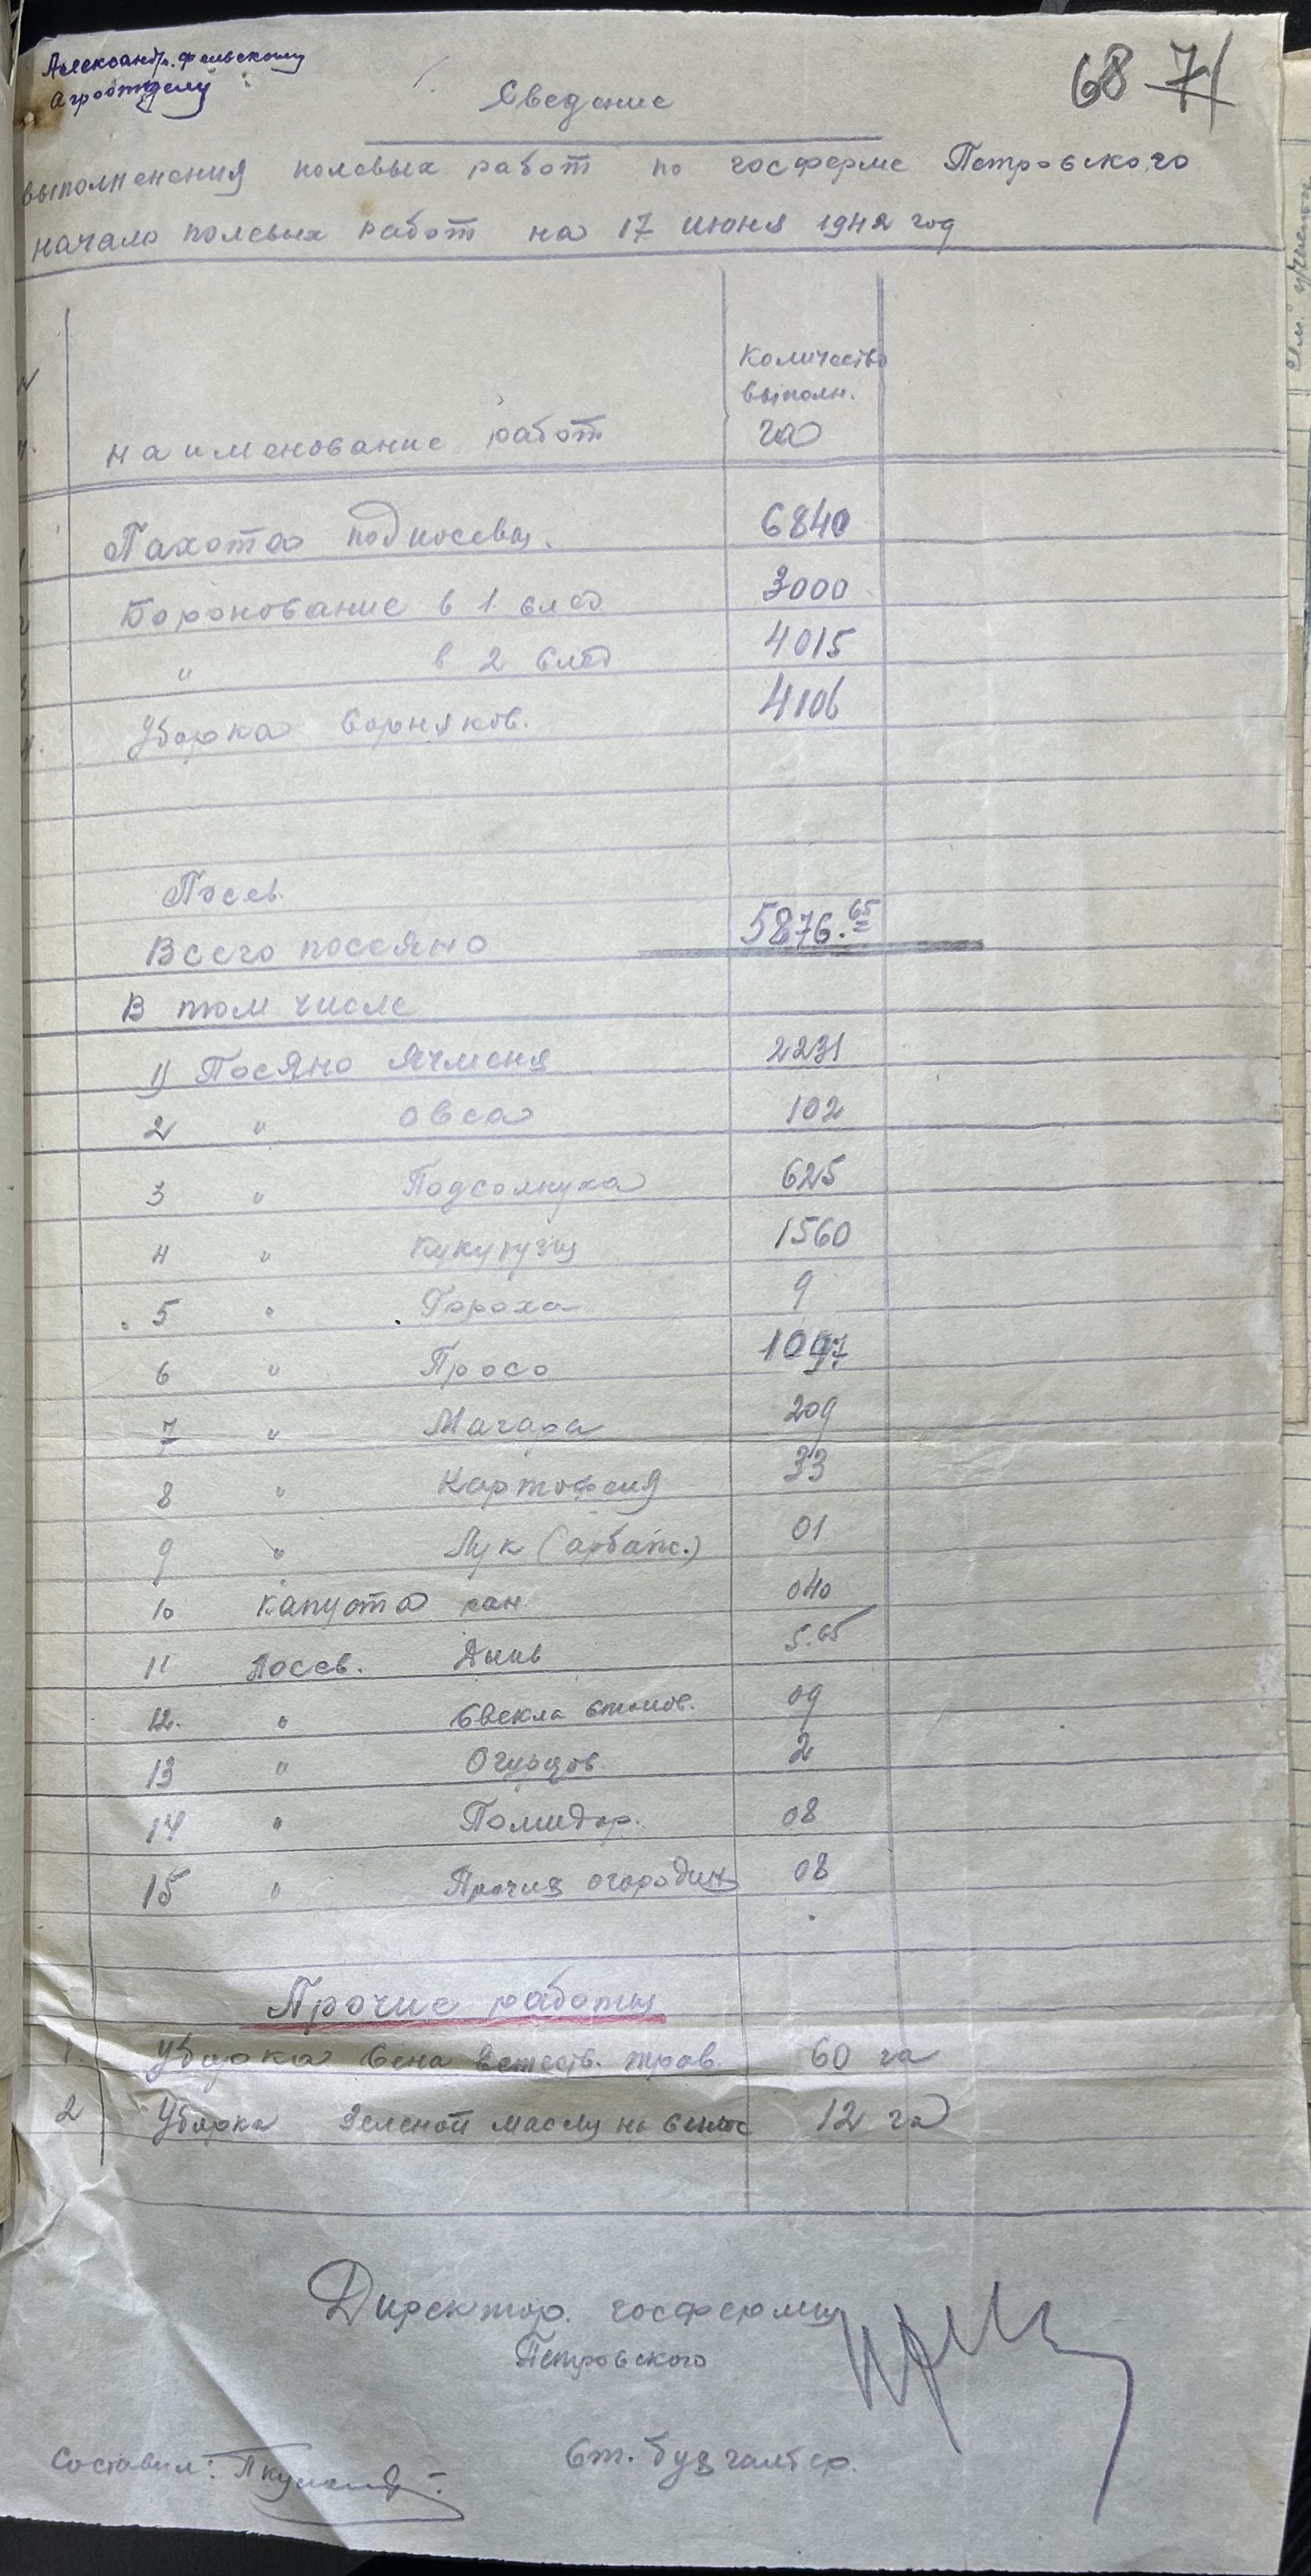 Александр.фельскому
агроотделу
68 71
Сведение
выполненения полевых работ по госферме Петровского
начало полевых работ на 17 июня 1942 год
наименование работ
количество
выполн.
га
1 Пахота под посевы. 6840
2 Боронование в 1 след 3000
3 " в 2 след 4015
4. Уборка сорняков. 4106
Посев.
Всего посеяно 5876.65
В том числе
1) Посяно Ячменя 2231
2 " овса 102
3 " Подсолнуха 625
4 " кукурузы 1560
5 " Гороха 9
6 " Просо 1097
7 " Магара 209
8 " Картофеля 33
9 " Лук (арбаж.) 01
10 капуста ран 040
11 Посев. Дынь 5.65
12. " Свекла столов. 09
13 " Огурцов 2
14 " Помидор. 08
15 " Прочия огородин 08
Прочие работы
1. Уборка сена естеств. трав. 60 га
2 Уборка Зеленой массы на силос 12 га
Директор. госфермы
Петровского
Ст. бухгалтер.
Составил: